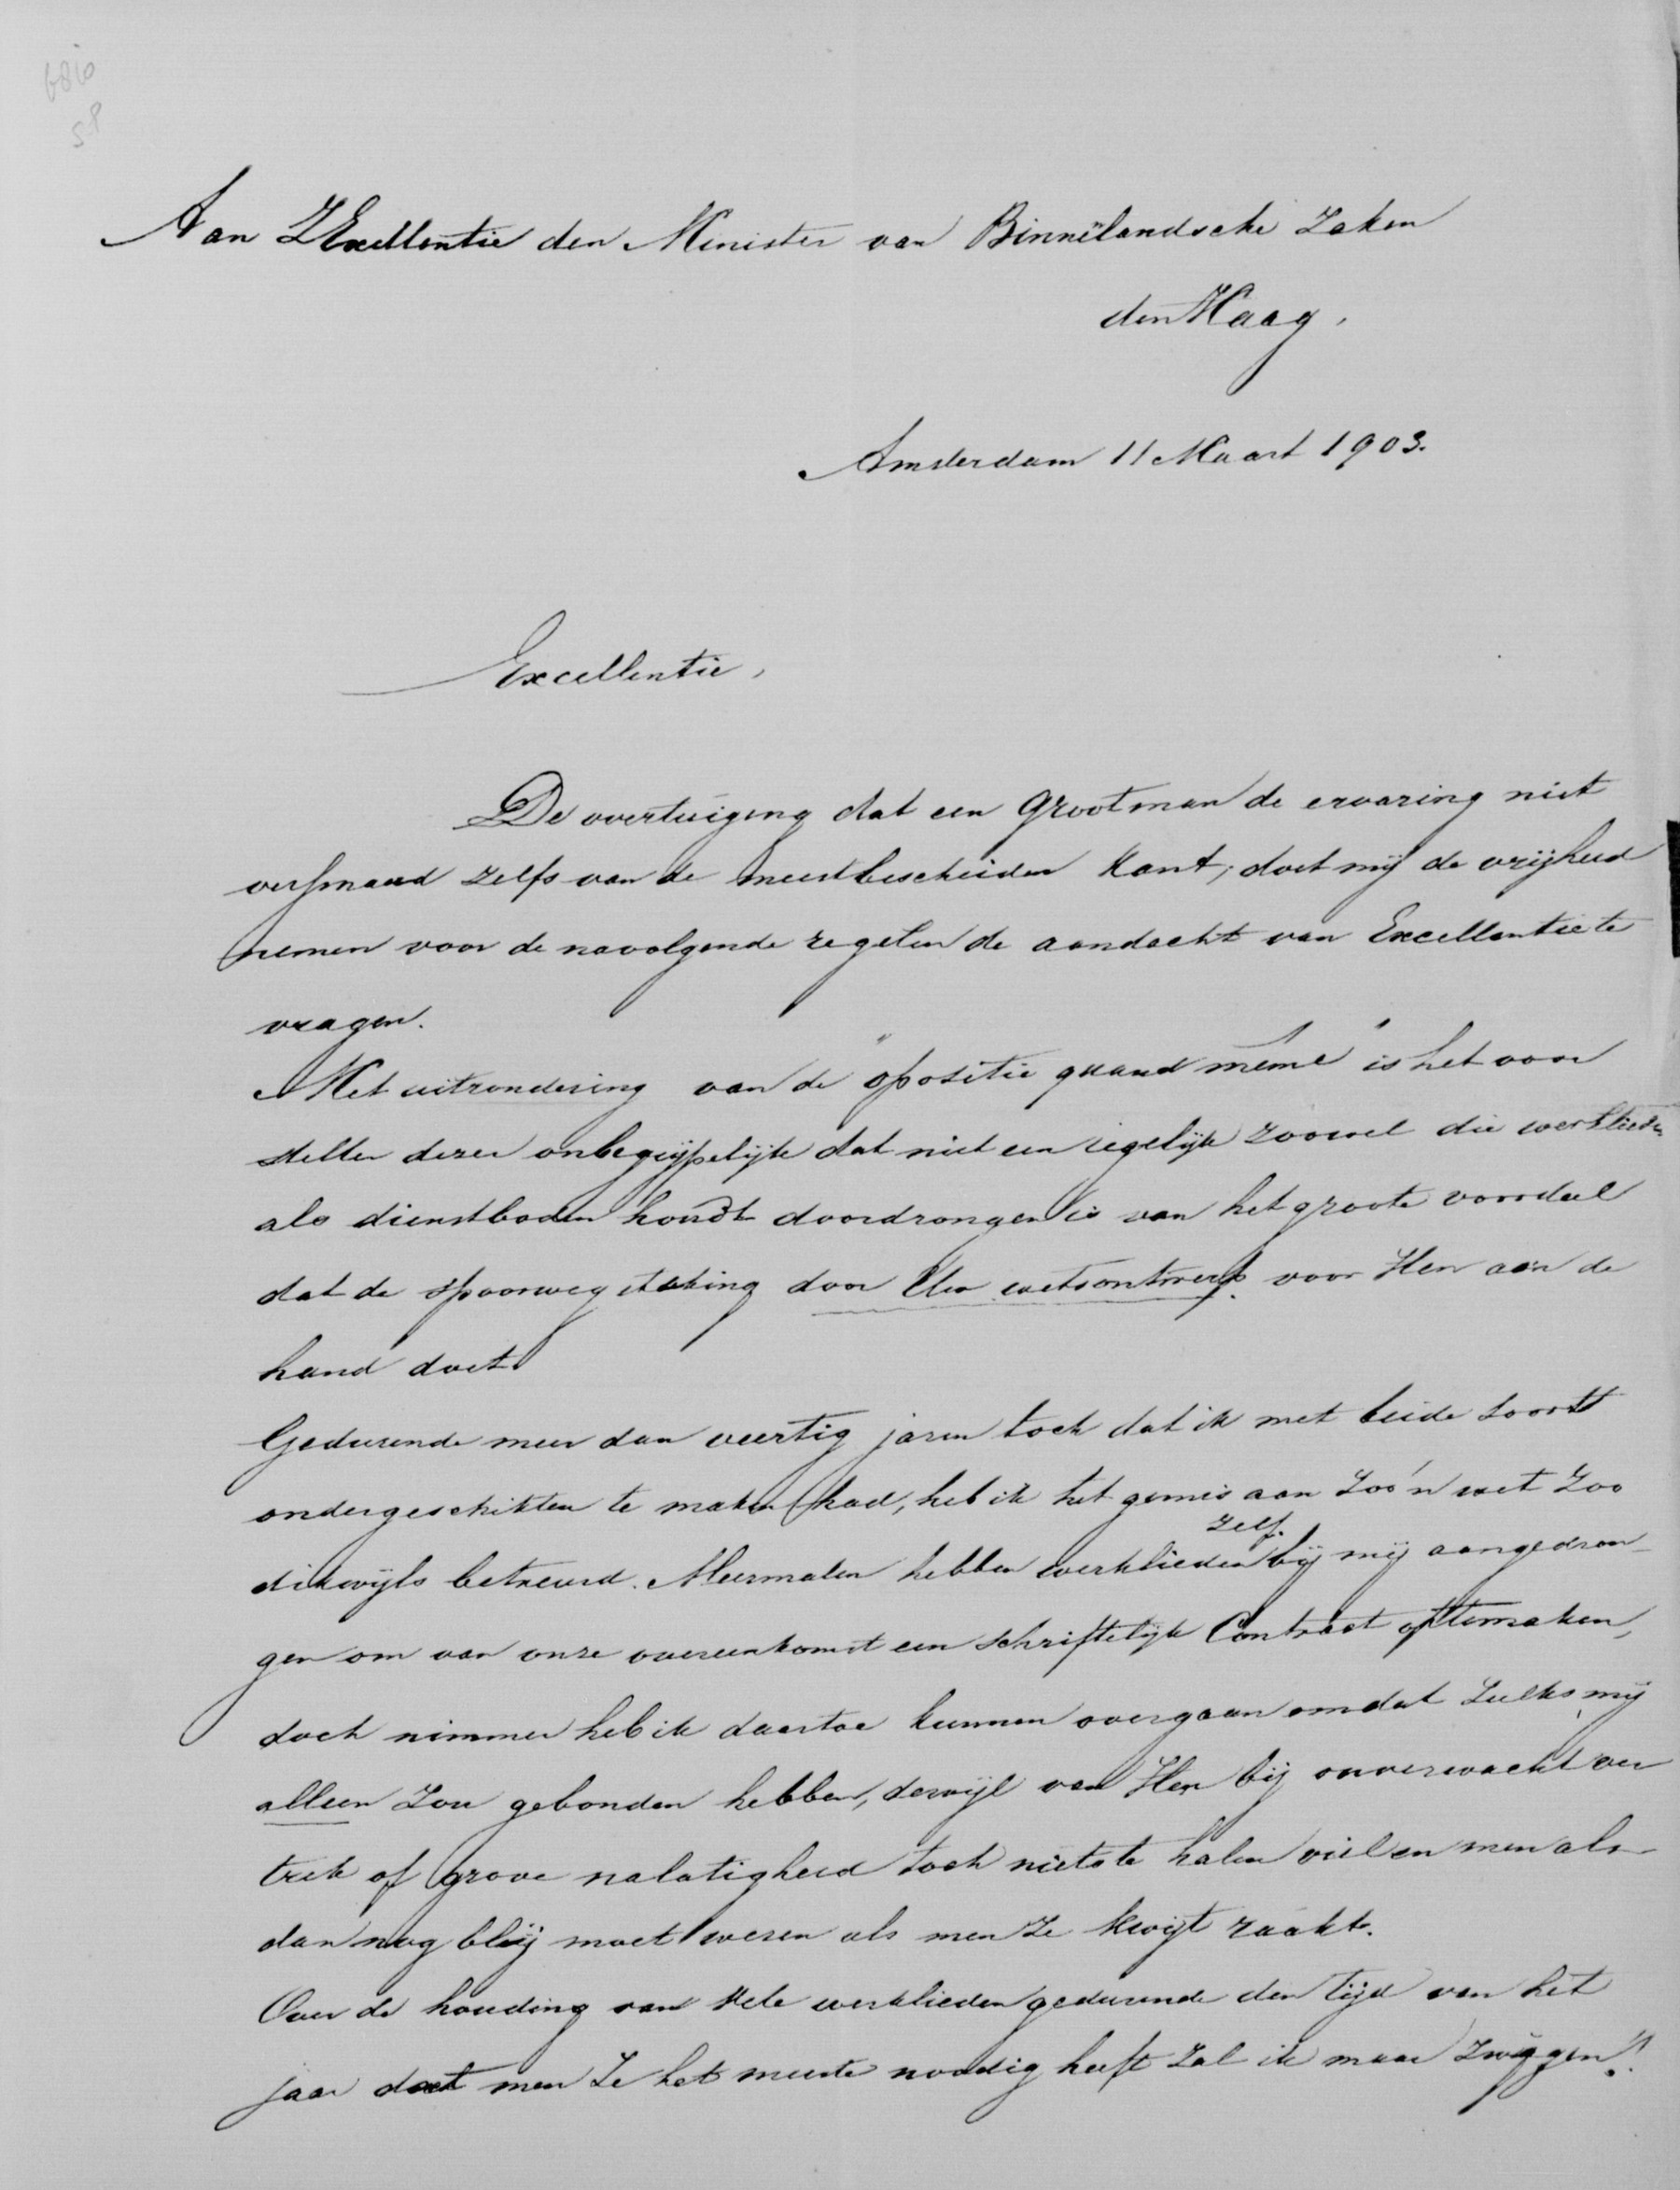 6810
58
Aan ZExellentie den Minister van Binnelandsche Zaken
den Haag.
Amsterdam 11 Maart 1903.
Excellentie,
De overtuiging dat een Groot man de ervaring niet
versmaad zelfs van de meest bescheiden kant, doet mij de vrijheid
nemen voor de navolgende regelen de aandacht van Excellentie te
vragen.
Met uitzondering van de "opositie quand même" is het voor
steller dezer onbegrijpelijk dat niet een iegelijk zoowel die werklieden
als dienstboden houdt doordrongen is van het groote voordeel
dat de spoorwegstaking door Uw wetsontwerp voor Hen aan de
hand doet
Gedurende meer dan veertig jaren toch dat ik met beide soorten
ondergeschikten te maken had, heb ik het gemis aan zoo'n wet zoo
dikwijls betreurd. Meermalen hebben werklieden zelf bij mij aangedron-
gen om van onze overeenkomst een schriftelijk Contract optemaken,
doch nimmer heb ik daartoe kunnen overgaan omdat zulks mij
alleen zou gebonden hebben, terwijl van Hen bij onverwacht ver
trek of grove nalatigheid toch niets te halen viel en men als-
dan nog blij moet wezen als men ze kwijt raakt.
Over de houding van vele werklieden gedurende den tijd van het
jaar dat men ze het meeste noodig heeft zal ik maar zwijgen!!